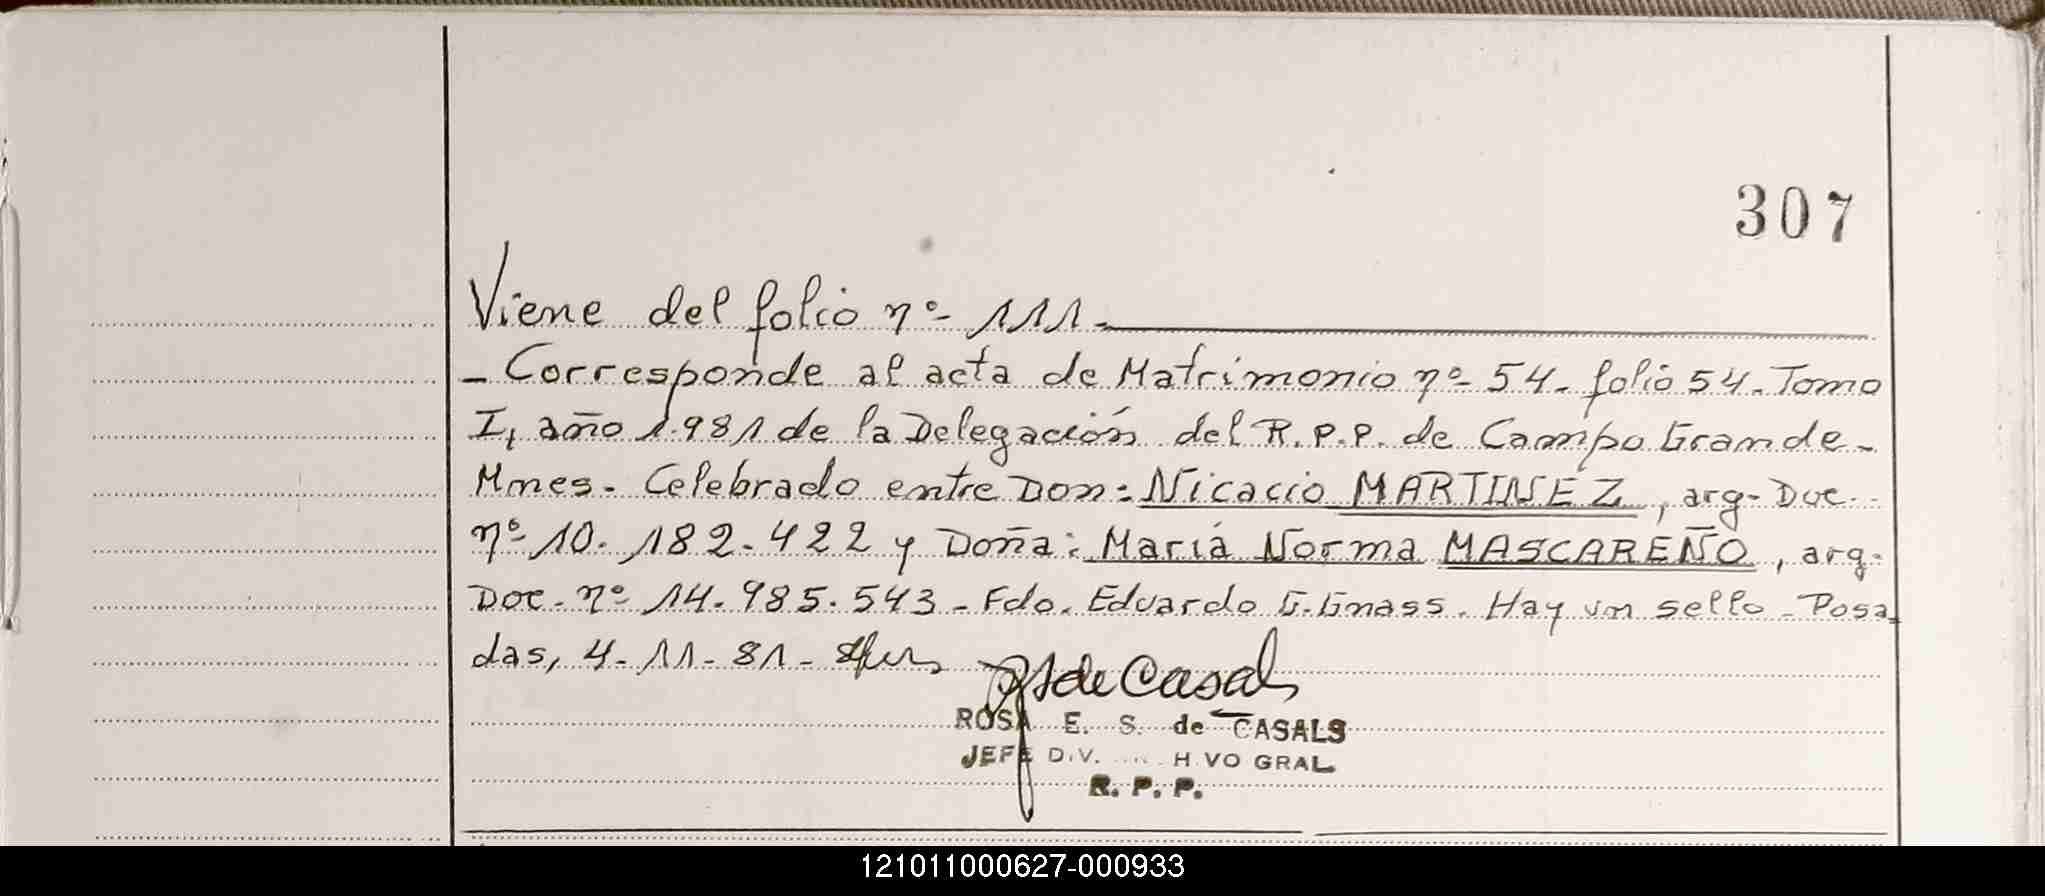 307
Viene del folio nº 111.
- Corresponde al acta de Matrimonio nº 54. folio 54. Tomo
I, año 1.981 de la Delegación del R.P.P. de Campo Grande-
Mnes. Celebrado entre Don: Nicacio MARTINEZ, arg- Doc.
nº 10.182.422 y Doña: María Norma MASCAREÑO, arg-
Doc. nº 14.985.543 - Fdo. Eduardo G. Gnass. Hay un sello - Posa
das, 4-11-81-
de Casals
ROSA E. S. de CASALS
JEFE DIV. GRAL
R. P. P.
121011000627-000933